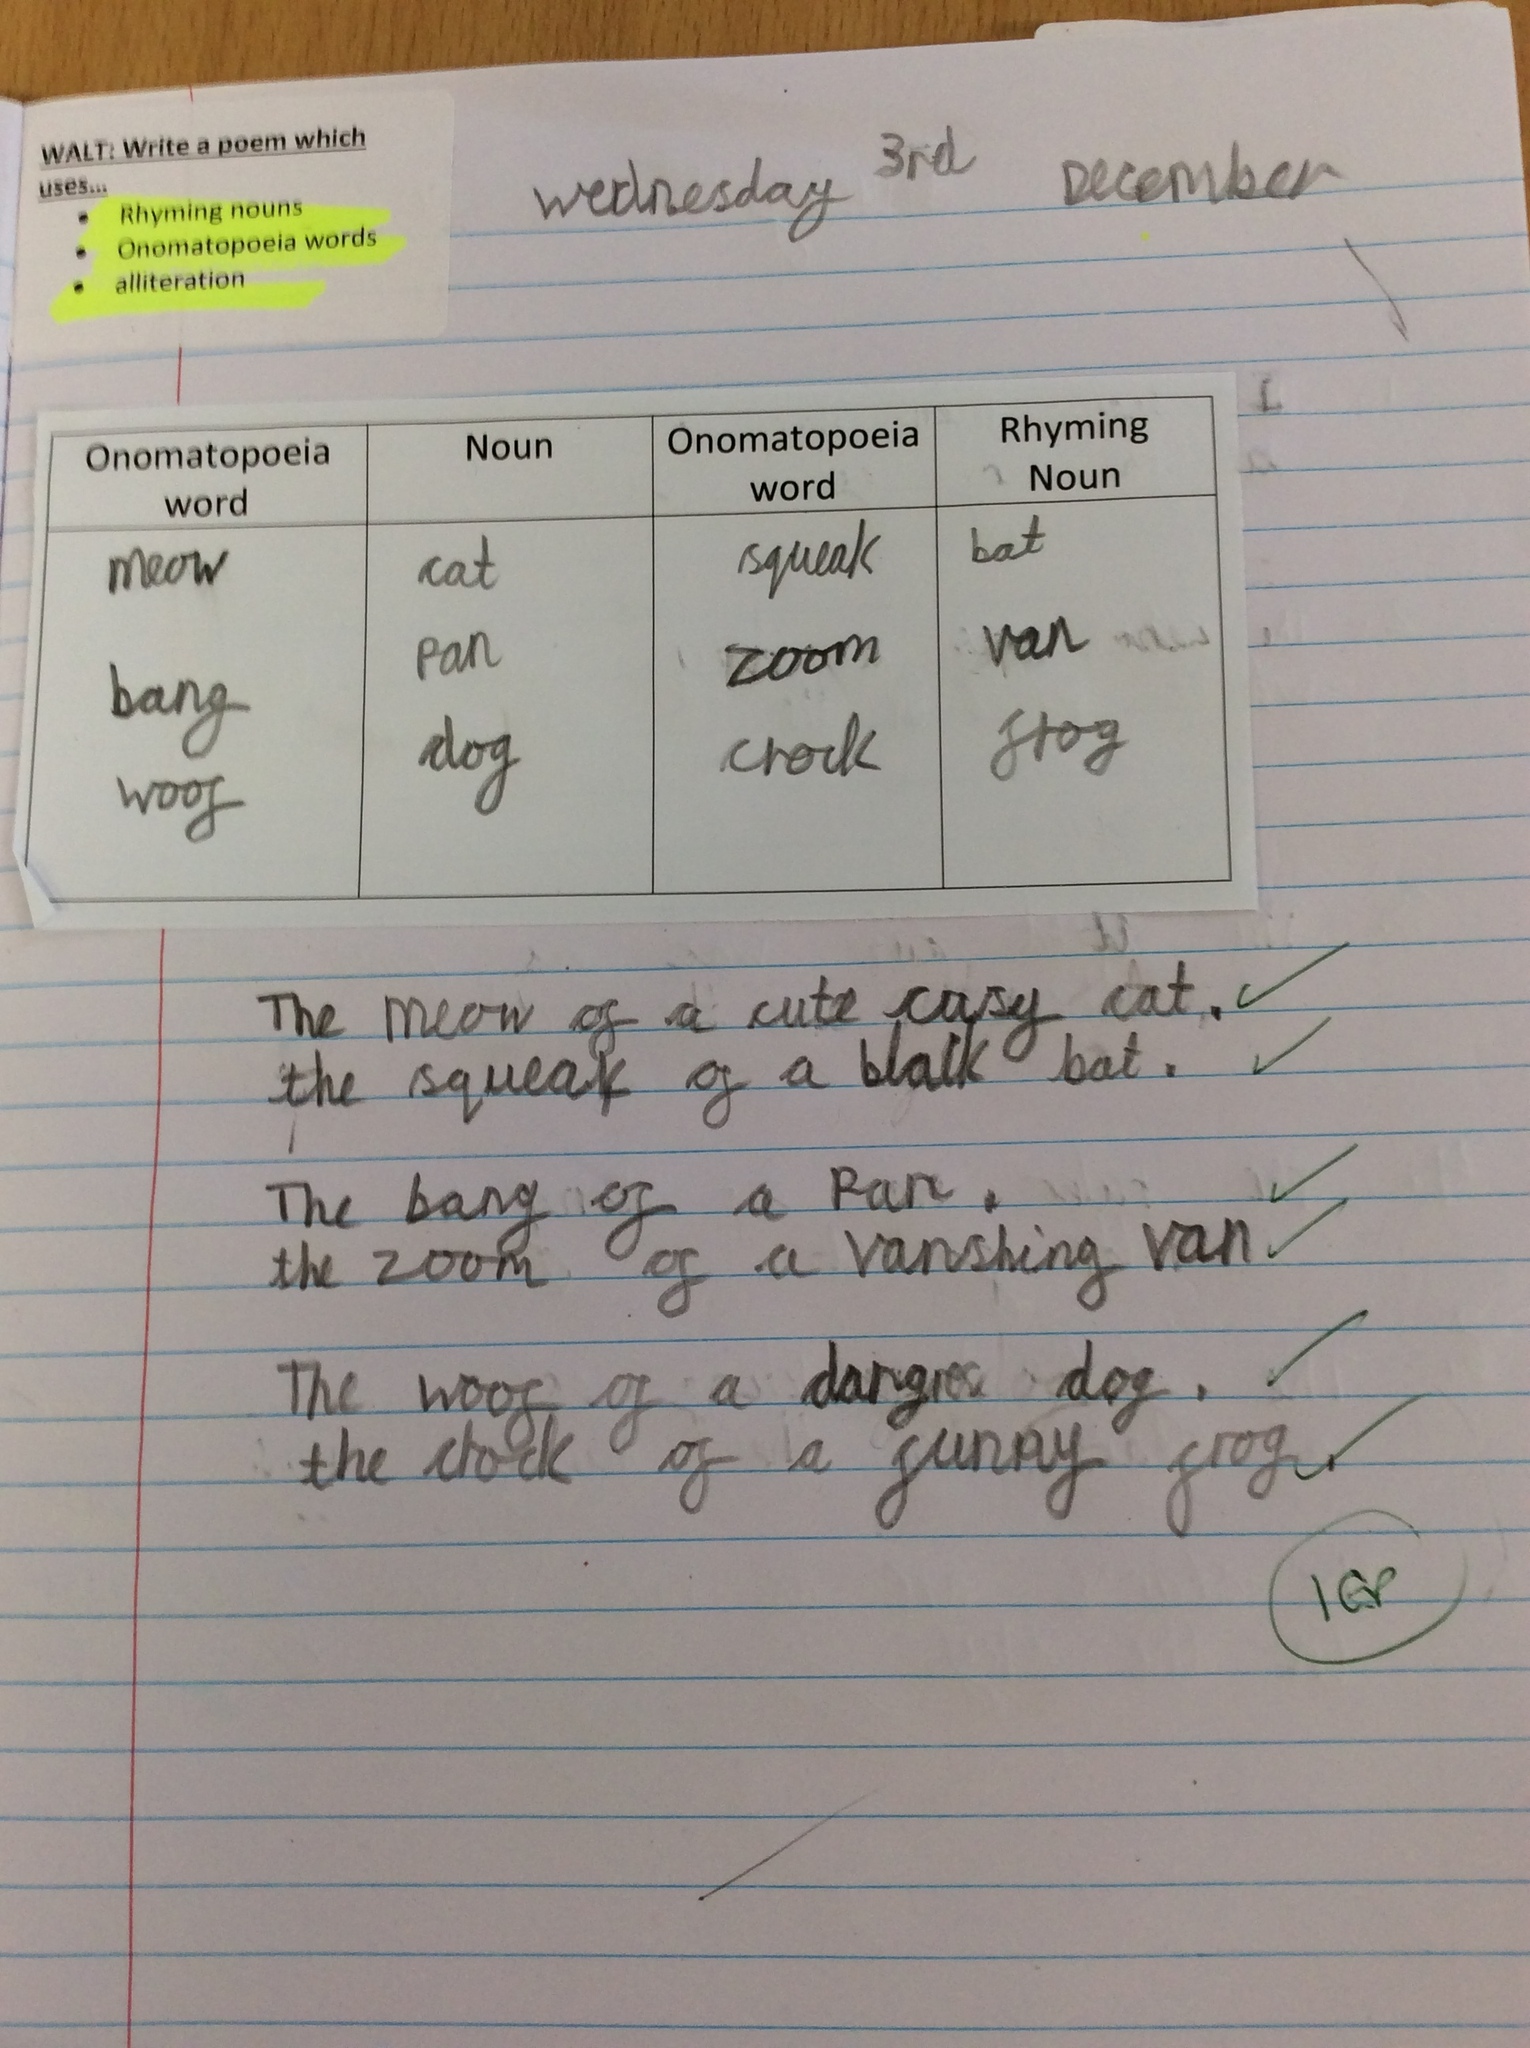 WALT: Write a poem which
uses...
• Rhyming nouns
• Onomatopoeia words
• alliteration
Wednesday 3rd December
Onomatopoeia word | Noun | Onomatopoeia word | Rhyming Noun
meow | cat | squeak | bat
bang | pan | zoom | van
woof | dog | crock | frog
The meow of a cute casy cat.
the squeak of a blalk bat.
The bang of a Pan.
the zoom of a vanshing van
The woof of a dog.
the crock of a funny frog.